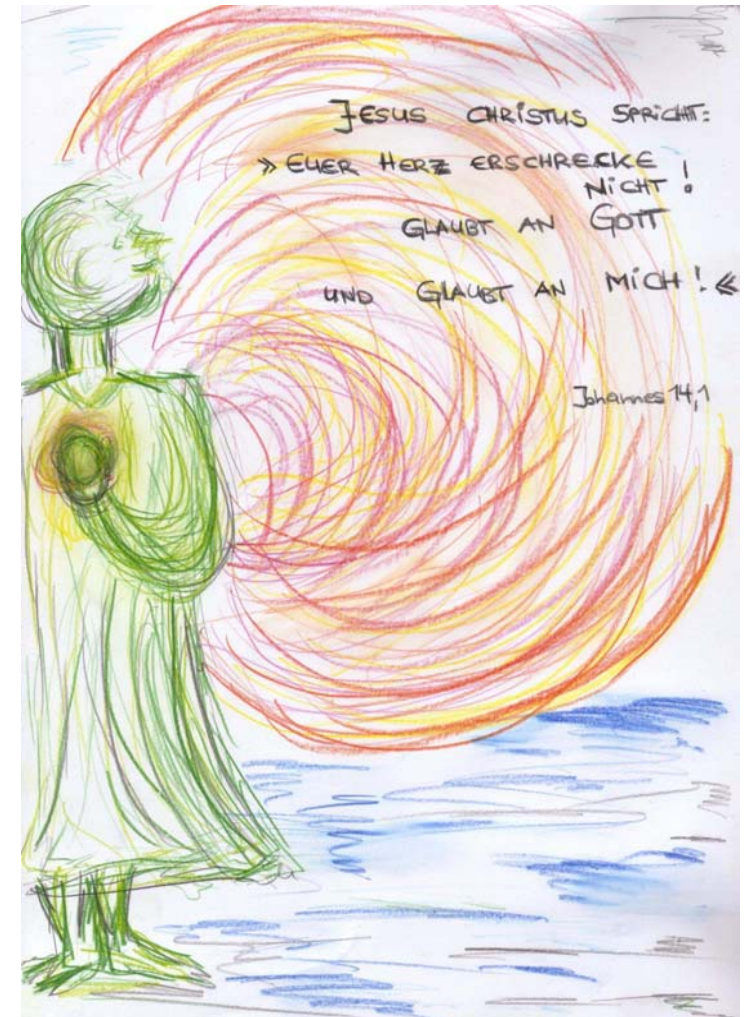 JESUS CHRISTUS SPRICHT:
» EUER HERZ ERSCHRECKE
NICHT !
GLAUBT AN GOTT
UND GLAUBT AN MICH ! «
Johannes 14,1